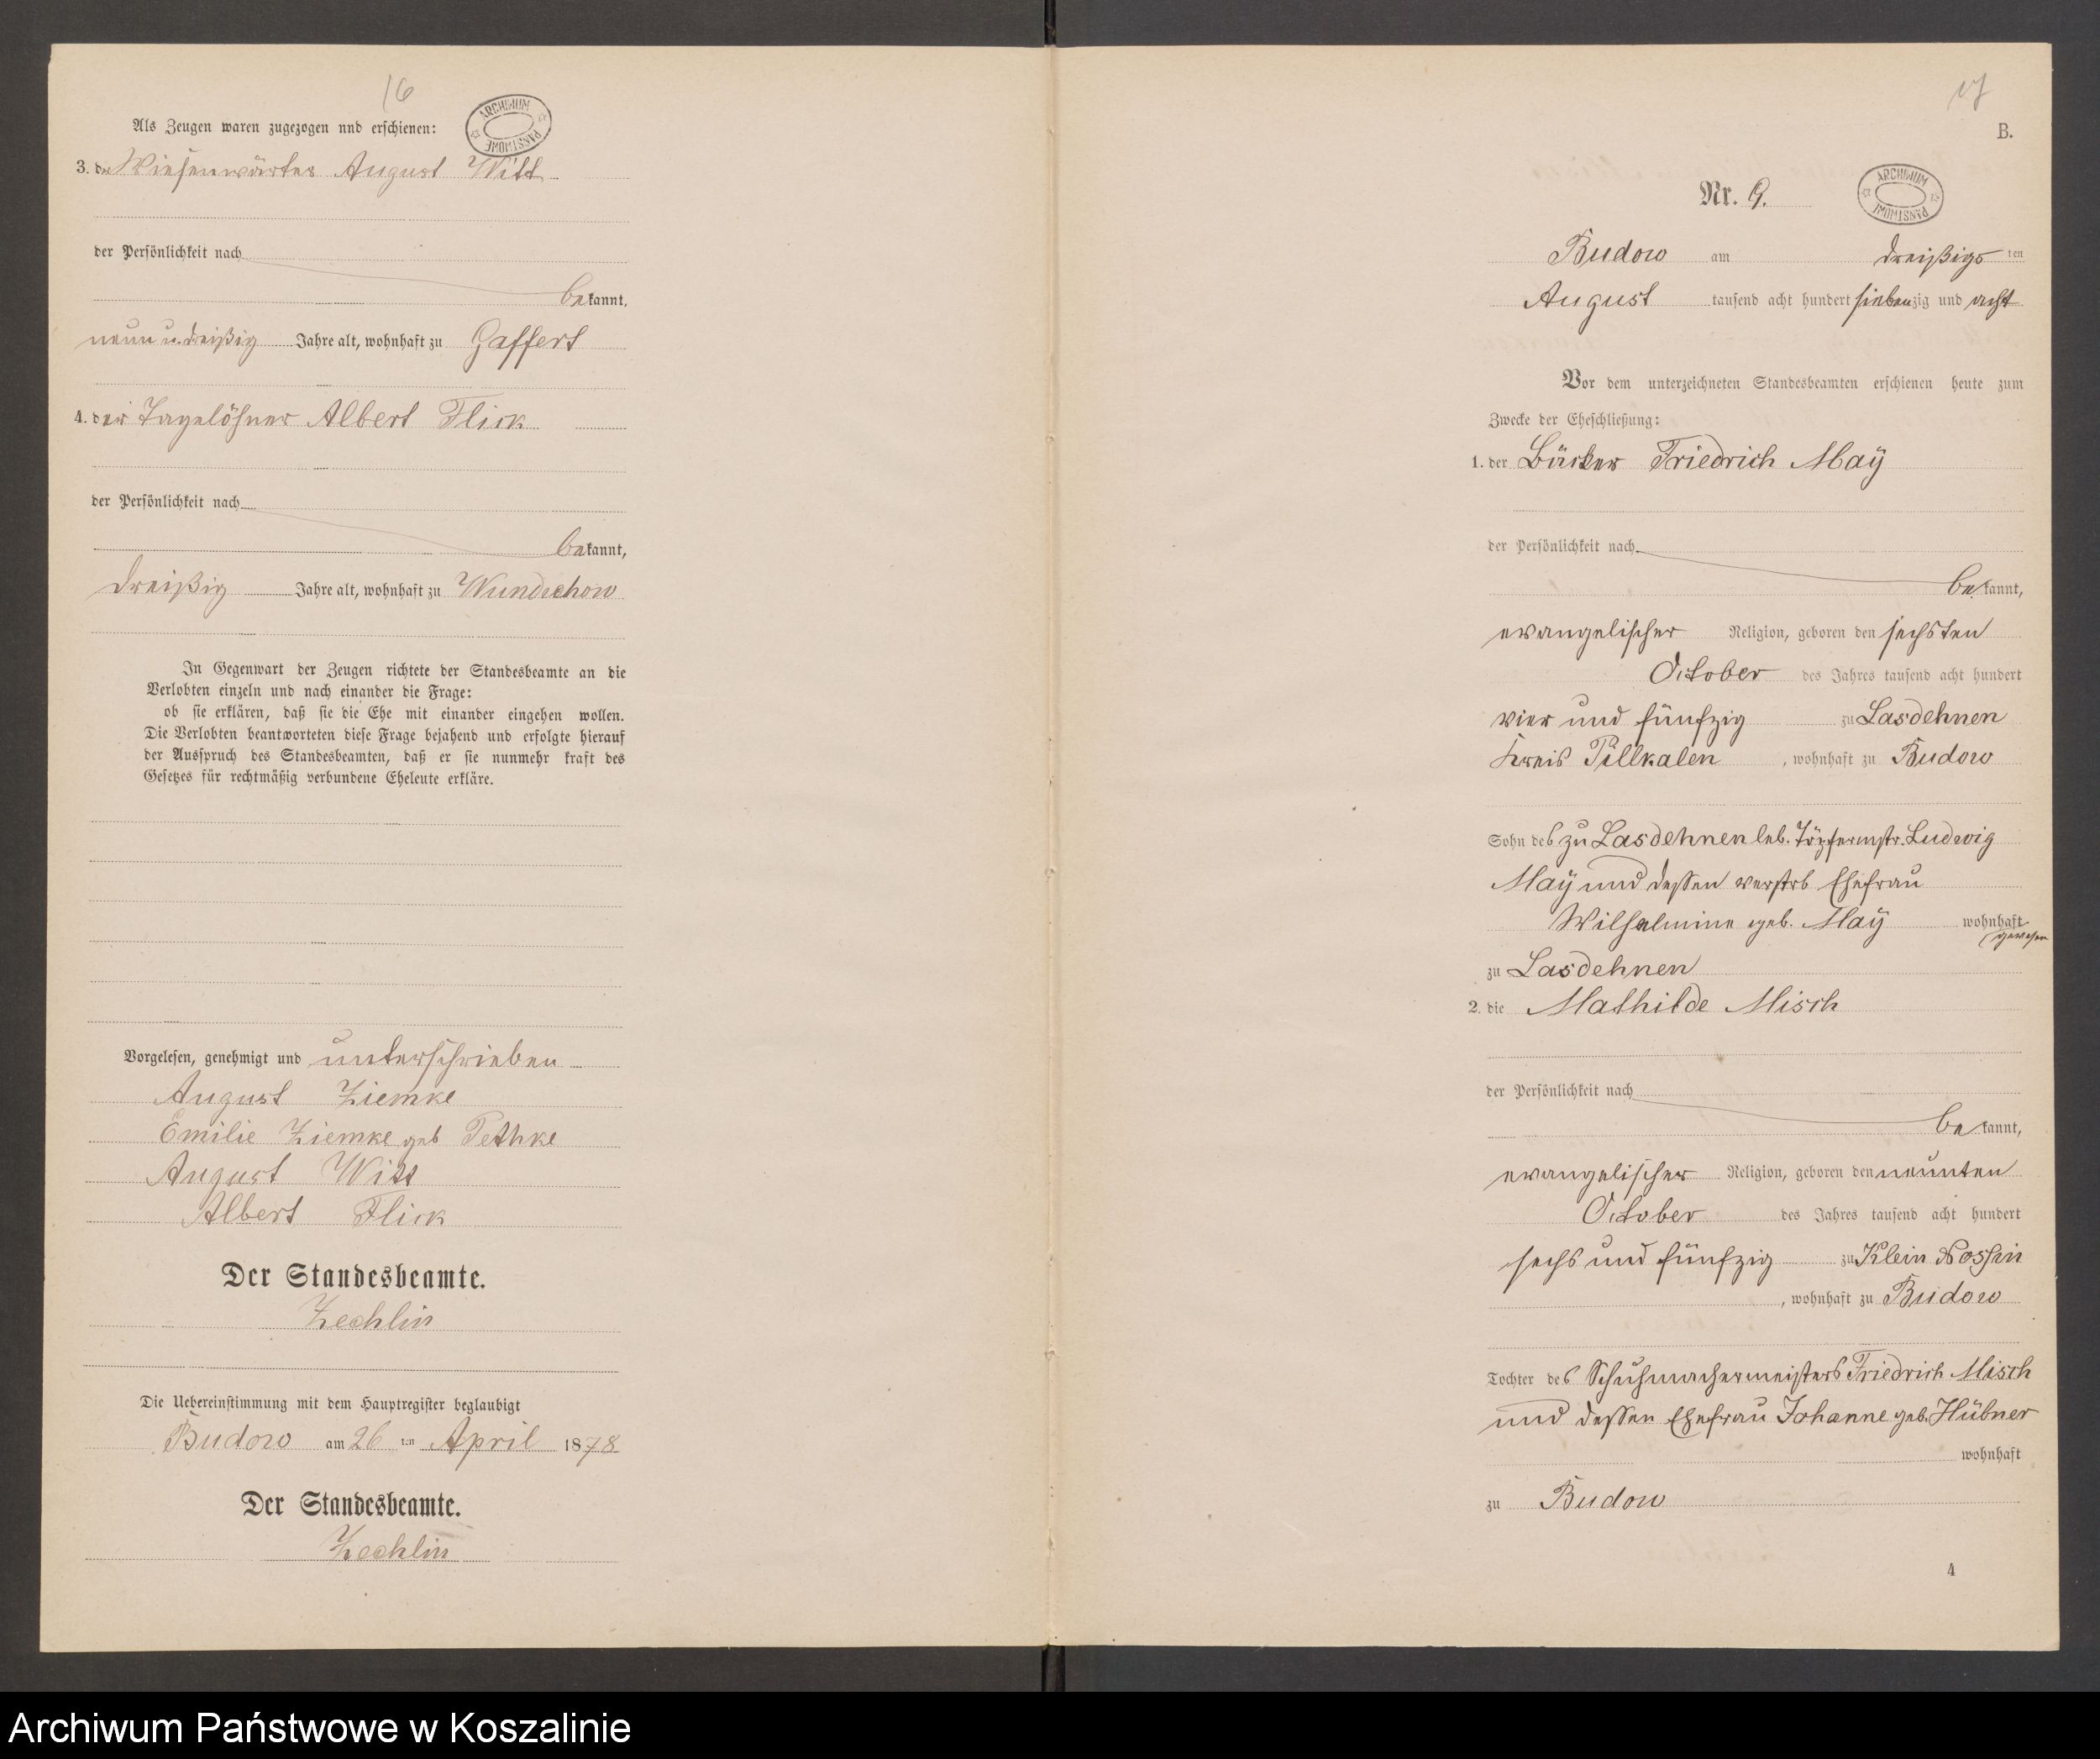 16
ARCHIWUM PAŃSTWOWE
Als Zeugen waren zugezogen und erschienen:
3. der Wiesenwärter August Witt
der Persönlichkeit nach
bekannt,
neun u. dreißig Jahre alt, wohnhaft zu Gaffert
4. der Tagelöhner Albert Flick
der Persönlichkeit nach
bekannt,
dreißig Jahre alt, wohnhaft zu Wundichow
In Gegenwart der Zeugen richtete der Standesbeamte an die
Verlobten einzeln und nach einander die Frage:
ob sie erklären, daß sie die Ehe mit einander eingehen wollen.
Die Verlobten beantworteten diese Frage bejahend und erfolgte hierauf
der Ausspruch des Standesbeamten, daß er sie nunmehr kraft des
Gesetzes für rechtmäßig verbundene Eheleute erkläre.
Vorgelesen, genehmigt und unterschrieben
August Ziemke
Emilie Ziemke geb Pethke
August Witt
Albert Flick
Der Standesbeamte.
Zechlin
Die Uebereinstimmung mit dem Hauptregister beglaubigt
Budow am 26 ten April 1878
Der Standesbeamte.
Zechlin
17
B.
ARCHIWUM PAŃSTWOWE
Nr. 9.
Budow am dreißigsten
August tausend acht hundert siebenzig und acht
Vor dem unterzeichneten Standesbeamten erschienen heute zum
Zwecke der Eheschließung:
1. der Bäcker Friedrich Maÿ
der Persönlichkeit nach
bekannt,
evangelischer Religion, geboren den sechsten
October des Jahres tausend acht hundert
vier und fünfzig zu Lasdehnen
Kreis Pillkalen, wohnhaft zu Budow
Sohn des zu Lasdehnen leb. Töpfermstr. Ludwig
Maÿ und dessen verstrb Ehefrau
Wilhelmine geb. Maÿ wohnhaft
gewesen
zu Lasdehnen
2. die Mathilde Misch
der Persönlichkeit nach
bekannt,
evangelischer Religion, geboren den neunten
October des Jahres tausend acht hundert
sechs und fünfzig zu Klein Nossin
, wohnhaft zu Budow
Tochter des Schuhmachermeisters Friedrich Misch
und dessen Ehefrau Johanne geb. Hübner
wohnhaft
zu Budow
4
Archiwum Państwowe w Koszalinie